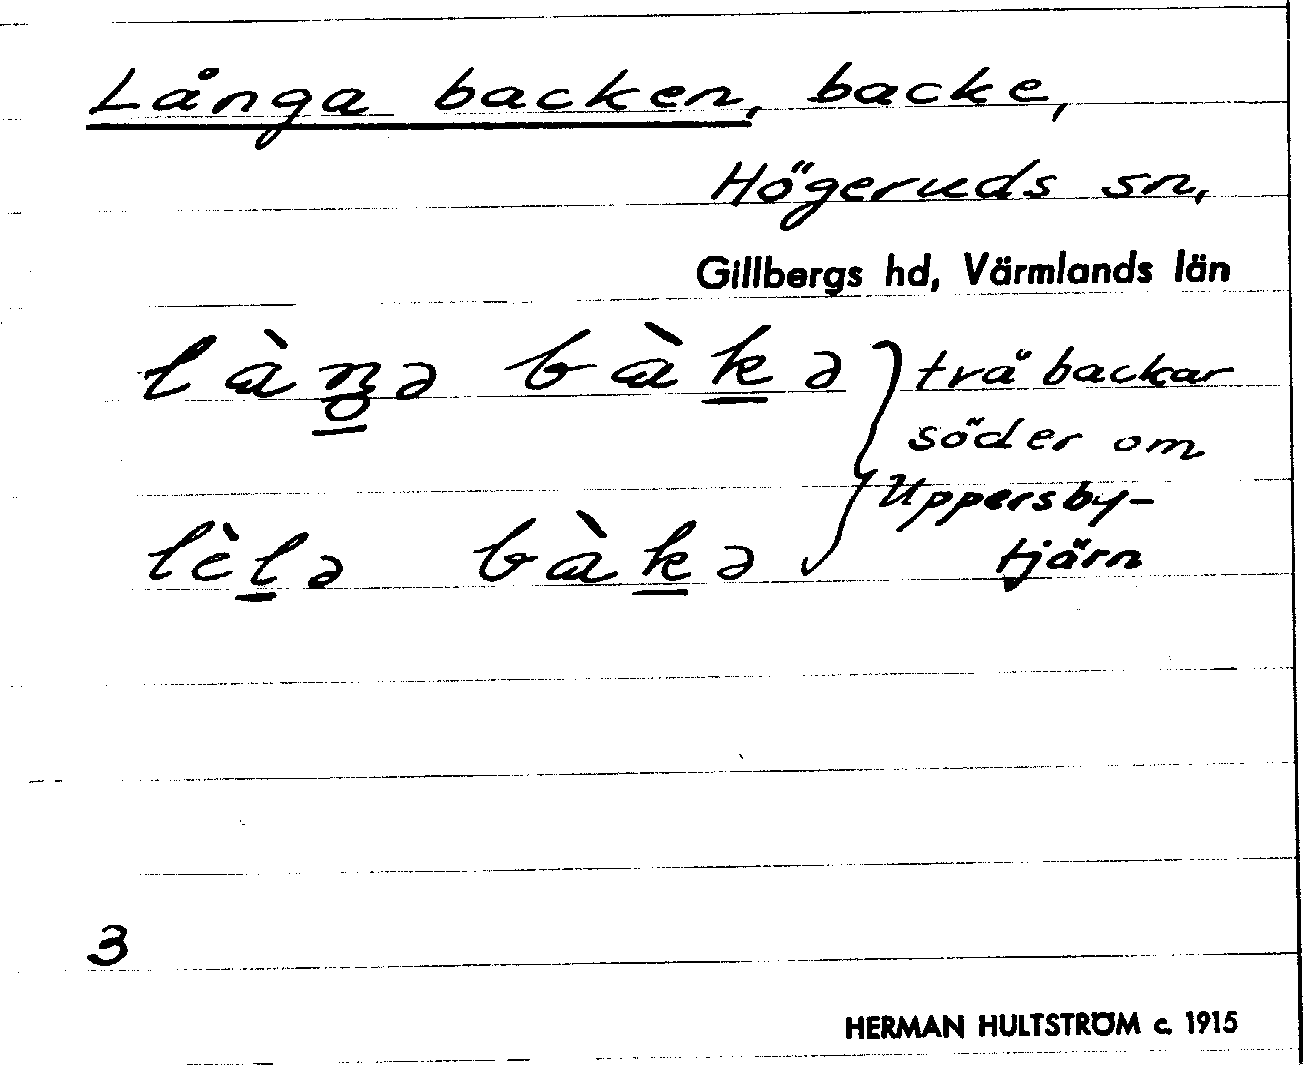 Långa backen, backe,
Högeruds sn,
Gillbergs hd, Värmlands län
làŋə bàkə } två backar
söder om
Uppersby-
tjärn
lèlə bàkə
3
HERMAN HULTSTRÖM c. 1915